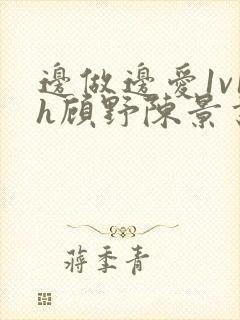 邊做邊愛1v1
h顧野陳景言
蔣季青